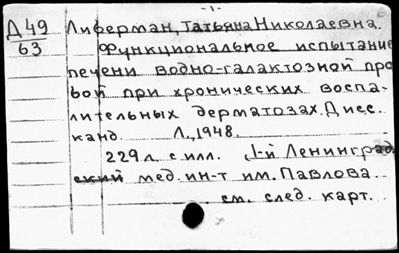 - 1 -
Д 49 Либерман, Татьяна Николаевна.
63 Функциональное испытание
печени водно-галактозной про
бой при хронических воспа-
лительных дерматозах. Дисс.
канд. Л., 1948.
229 л. с илл. 1-й Ленинград
ский мед. ин-т им. Павлова
см. след. карт.